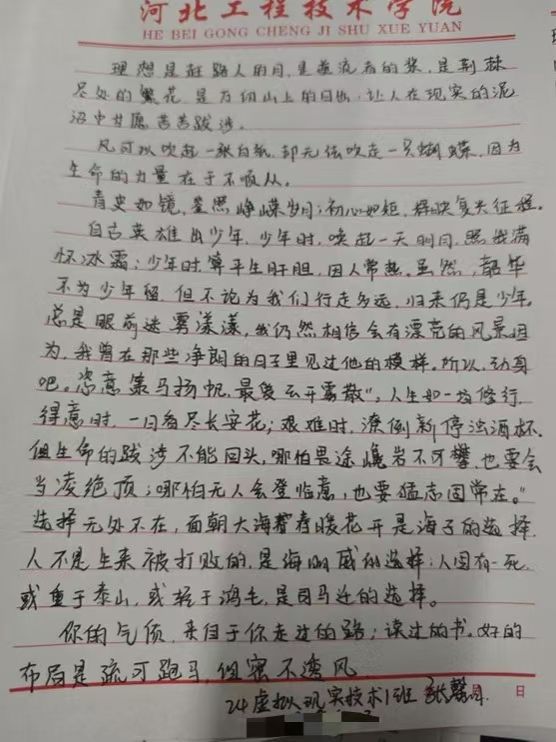 河北工程技术学院
HE BEI GONG CHENG JI SHU XUE YUAN
理想是赶路人的月,是逆流者的桨,是荆棘
尽处的繁花,是万仞山上的日出,让人在现实的泥
沼中甘愿苦苦跋涉。
风可以吹起一张白纸,却无法吹走一只蝴蝶,因为
生命的力量在于不顺从。
青史如镜,鉴照峥嵘岁月;初心如炬,辉映复兴征程。
自古英雄出少年,少年时,唤起一天明月,照我满
怀冰霜;少年时,算平生肝胆,因人常热。虽然,韶华
不为少年留,但不论为我们行走多远,归来仍是少年。
总是眼前迷雾漾漾,我仍然相信会有漂亮的风景因
为,我曾在那些净朗的日子里见过他的模样,所以,动身
吧。恣意策马扬帆,最后云开雾散”,人生如一场修行,
得意时,一日看尽长安花;艰难时,潦倒新停浊酒杯.
但生命的跋涉不能回头,哪怕畏途巉岩不可攀,也要会
当凌绝顶;哪怕无人会登临意,也要猛志固常在。”
选择无处不在,面朝大海春暖花开是海子的选择,
人不是生来被打败的,是海明威的选择;人固有一死,
或重于泰山,或轻于鸿毛,是司马迁的选择。
你的气质,来自于你走过的路;读过的书。好的
布局是疏可跑马,但密不透风
24虚拟现实技术1班
月 日